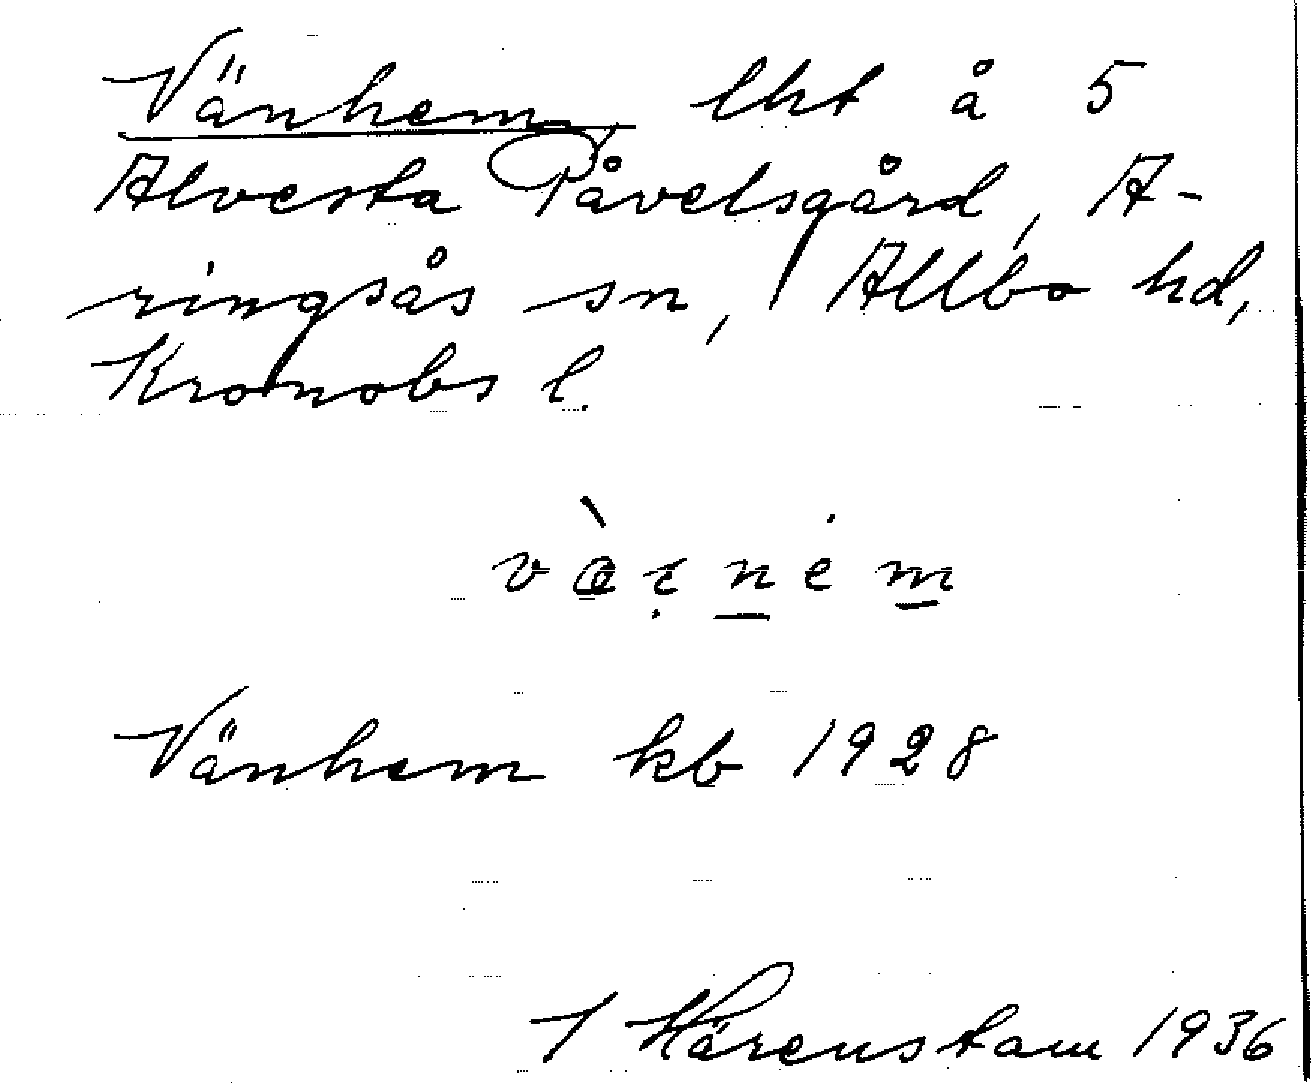 Vänhem, lht å 5
Alvesta Påvelsgård, A-
ringsås sn, Allbo hd,
Kronobs l.
Vänhem kb 1928
I Härenstam 1936